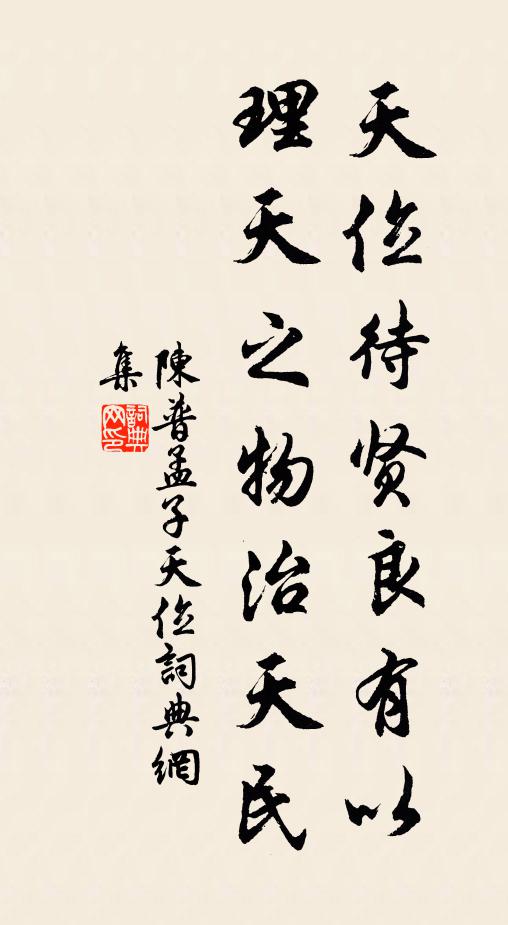 天位待贤良有以
理天之物治天民
陳普孟子天位詞典網
集
詞典
网印